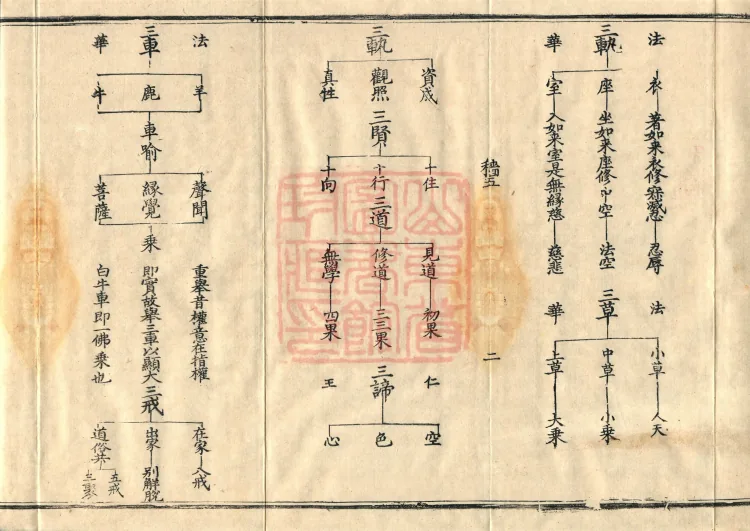 法
三軌
華
衣 著如来衣修寂滅忍 忍辱
座 坐如来座修中空 法空
室 入如来室是無緣慈 慈悲
法
三草
華
小草 人天
中草 小乗
上草 大乗
穡五
二
三軌
資成
觀照
真性
三賢
十住
十行
十向
三道
見道 初果
修道 三三果
無學 四果
仁
三諦
王
空
色
心
法
三車
華
羊
鹿
牛
車喻
聲聞
緣覺
菩薩
乘
重舉昔權意在指權
即實故舉三車以顯大
白牛車即一佛乘也
三戒
在家 八戒
出家 別解脫
道俗共
五戒
三聚